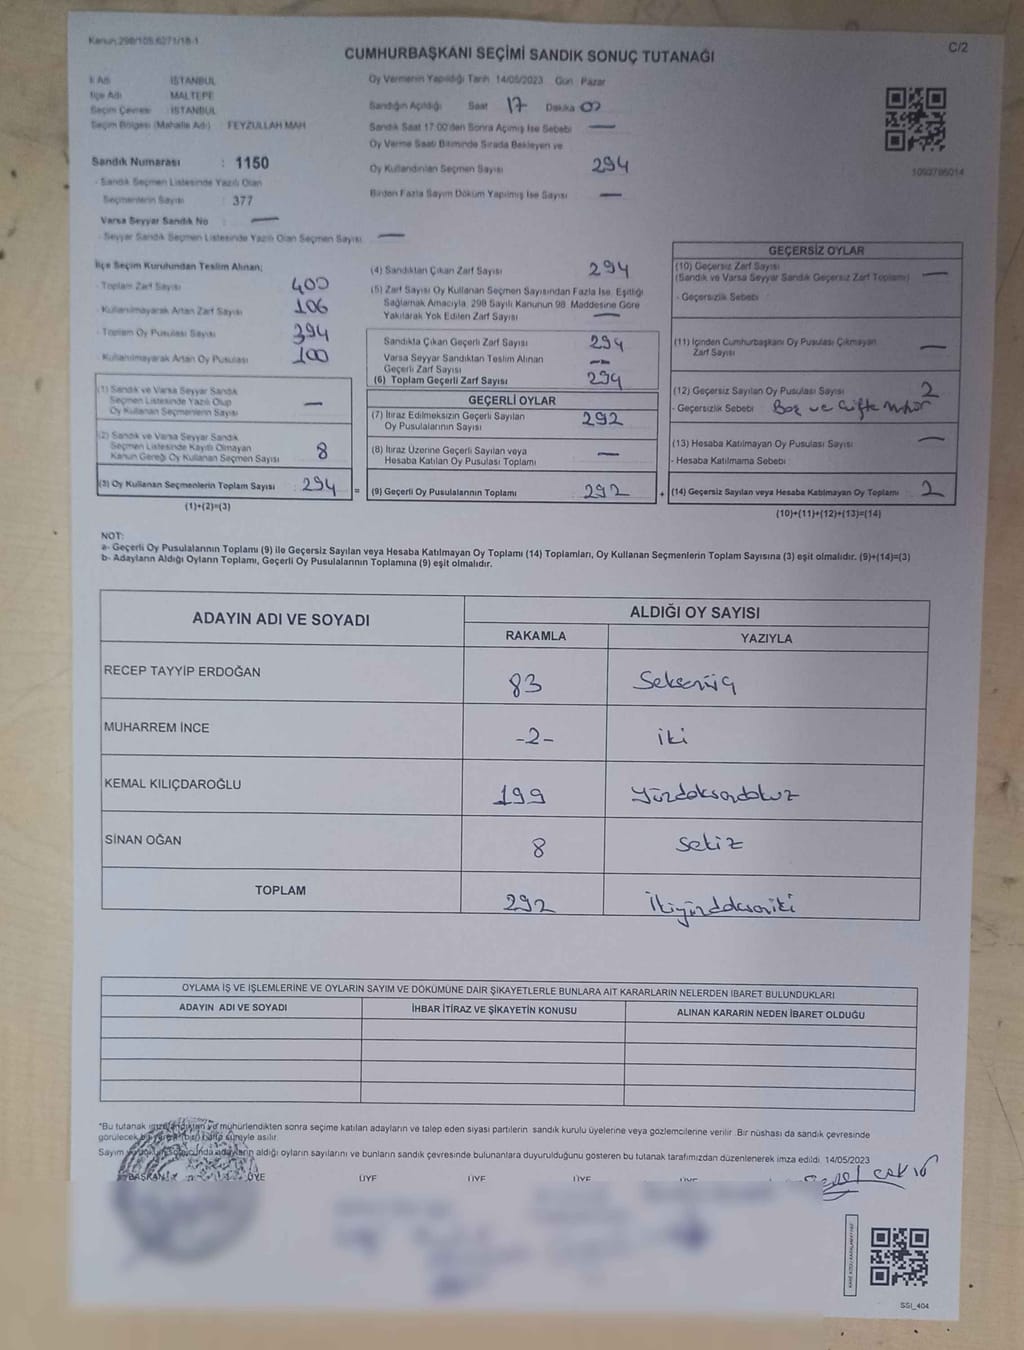 Kanun:298/105,6271/18-1
C/2
CUMHURBAŞKANI SEÇİMİ SANDIK SONUÇ TUTANAĞI
İl Adı İSTANBUL
İlçe Adı MALTEPE
Seçim Çevresi İSTANBUL
Seçim Bölgesi (Mahalle Adı) FEYZULLAH MAH
Sandık Numarası : 1150
- Sandık Seçmen Listesinde Yazılı Olan
Seçmenlerin Sayısı : 377
Varsa Seyyar Sandık No —
- Seyyar Sandık Seçmen Listesinde Yazılı Olan Seçmen Sayısı —
Oy Vermenin Yapıldığı Tarih 14/05/2023 Gün Pazar
Sandığın Açıldığı Saat 17 Dakika 00
Sandık Saat 17:00'den Sonra Açılmış İse Sebebi —
Oy Verme Saati Bitiminde Sırada Bekleyen ve
Oy Kullandırılan Seçmen Sayısı 294
Birden Fazla Sayım Döküm Yapılmış İse Sayısı —
İlçe Seçim Kurulundan Teslim Alınan;
- Toplam Zarf Sayısı : 400
- Kullanılmayarak Artan Zarf Sayısı : 106
- Toplam Oy Pusulası Sayısı : 394
- Kullanılmayarak Artan Oy Pusulası : 100
(1) Sandık ve Varsa Seyyar Sandık
Seçmen Listesinde Yazılı Olup
Oy Kullanan Seçmenlerin Sayısı : —
(2) Sandık ve Varsa Seyyar Sandık
Seçmen Listesinde Kayıtlı Olmayan
Kanun Gereği Oy Kullanan Seçmen Sayısı : 8
(3) Oy Kullanan Seçmenlerin Toplam Sayısı : 294 =
(1)+(2)=(3)
(4) Sandıktan Çıkan Zarf Sayısı : 294
(5) Zarf Sayısı Oy Kullanan Seçmen Sayısından Fazla İse, Eşitliği
Sağlamak Amacıyla, 298 Sayılı Kanunun 98. Maddesine Göre
Yakılarak Yok Edilen Zarf Sayısı : —
Sandıkta Çıkan Geçerli Zarf Sayısı : 294
Varsa Seyyar Sandıktan Teslim Alınan
Geçerli Zarf Sayısı : —
(6) Toplam Geçerli Zarf Sayısı : 294
GEÇERLİ OYLAR
(7) İtiraz Edilmeksizin Geçerli Sayılan
Oy Pusulalarının Sayısı : 292
(8) İtiraz Üzerine Geçerli Sayılan veya
Hesaba Katılan Oy Pusulası Toplamı : —
(9) Geçerli Oy Pusulalarının Toplamı : 292 +
GEÇERSİZ OYLAR
(10) Geçersiz Zarf Sayısı
(Sandık ve Varsa Seyyar Sandık Geçersiz Zarf Toplamı) : —
- Geçersizlik Sebebi :
(11) İçinden Cumhurbaşkanı Oy Pusulası Çıkmayan
Zarf Sayısı : —
(12) Geçersiz Sayılan Oy Pusulası Sayısı : 2
- Geçersizlik Sebebi : Boş ve Çifte mühür
(13) Hesaba Katılmayan Oy Pusulası Sayısı : —
- Hesaba Katılmama Sebebi :
(14) Geçersiz Sayılan veya Hesaba Katılmayan Oy Toplamı : 2
(10)+(11)+(12)+(13)=(14)
1093795014
NOT:
a- Geçerli Oy Pusulalarının Toplamı (9) ile Geçersiz Sayılan veya Hesaba Katılmayan Oy Toplamı (14) Toplamları, Oy Kullanan Seçmenlerin Toplam Sayısına (3) eşit olmalıdır. (9)+(14)=(3)
b- Adayların Aldığı Oyların Toplamı, Geçerli Oy Pusulalarının Toplamına (9) eşit olmalıdır.
ADAYIN ADI VE SOYADI ALDIĞI OY SAYISI
RAKAMLA YAZIYLA
RECEP TAYYİP ERDOĞAN 83 Seksenüç
MUHARREM İNCE -2- iki
KEMAL KILIÇDAROĞLU 199 Yüzdoksandokuz
SİNAN OĞAN 8 sekiz
TOPLAM 292 İkiyüzdoksaniki
OYLAMA İŞ VE İŞLEMLERİNE VE OYLARIN SAYIM VE DÖKÜMÜNE DAİR ŞİKAYETLERLE BUNLARA AİT KARARLARIN NELERDEN İBARET BULUNDUKLARI
ADAYIN ADI VE SOYADI İHBAR İTİRAZ VE ŞİKAYETİN KONUSU ALINAN KARARIN NEDEN İBARET OLDUĞU
*Bu tutanak imzalandıktan ve mühürlendikten sonra seçime katılan adayların ve talep eden siyasi partilerin, sandık kurulu üyelerine veya gözlemcilerine verilir. Bir nüshası da sandık çevresinde
görülecek bir yere bir hafta süreyle asılır.
Sayım ve döküm sonucunda adayların aldığı oyların sayılarını ve bunların sandık çevresinde bulunanlara duyurulduğunu gösteren bu tutanak tarafımızdan düzenlenerek imza edildi. 14/05/2023
BAŞKAN ÜYE ÜYE ÜYE ÜYE ÜYE
SSI_404